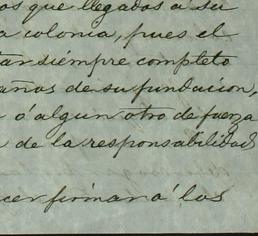 os que llegados a su
a colonia, pues el
tar siempre completo
años de su fundacion,
o ó algun otro de fuerza
de la responsabilidad
cer firmar á los